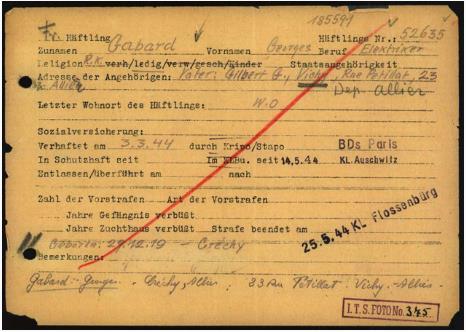 185591
Fr. Häftling Häftlings Nr.: 52635
Zunamen Gabard Vornamen Georges Beruf Elektriker
Religion R.K. verh/ledig/verw/gesch/Kinder Staatsangehörigkeit
Adresse der Angehörigen: Vater: Gilbert G., Vichy, Rue Petillat, 23
Allier Dep. Allier
Letzter Wohnort des Häftlings: W.O
Sozialversicherung:
Verhaftet am 3.3.44 durch Kripo/Stapo BDs Paris
In Schutzhaft seit Im KLBu. seit 14.5.44 KL. Auschwitz
Entlassen/überführt am nach
Zahl der Vorstrafen Art der Vorstrafen
Jahre Gefängnis verbüßt
Jahre Zuchthaus verbüßt Strafe beendet am
25.5.44 KL Flossenbürg
Geboren: 29.12.19 - Crechy
Bemerkungen:
Gabard - Georges - Créchy, Allier; Petillat Vichy - Allier
I.T.S. FOTO No. 345